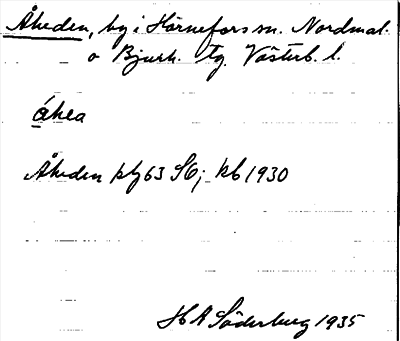 Åheden, by i Hörnefors sn. Nordmal.
o Bjurh. tg. Västerb. l.
åhea
Åheden btj 63 SO; kb 1930
H A Söderberg 1935